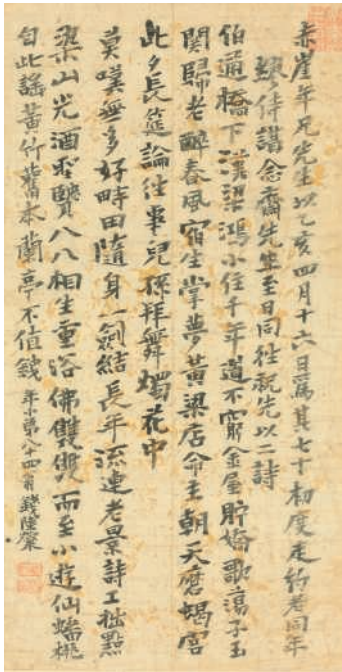 赤崖年兄先生以乙亥四月十六日爲其七十初度走約君同年
侍講念齋先生至日同往祝先以二詩
伯通橋下漢梁鴻小住千年道不窮金屋貯嬌歌蕩子玉
關歸老醉春風宿生掌夢黄粱店命主朝天磨蝎宫
此夕長筵論往事兒孫拜舞燭花中
莫嘆無多好畤田隨身一劍結長年流連老景詩工拙點
染山光酒聖賢八八相生重浴佛雙雙而至小遊仙蟠桃
自此謡黄竹舊本蘭亭不值錢 年小弟八十四翁錢陸燦